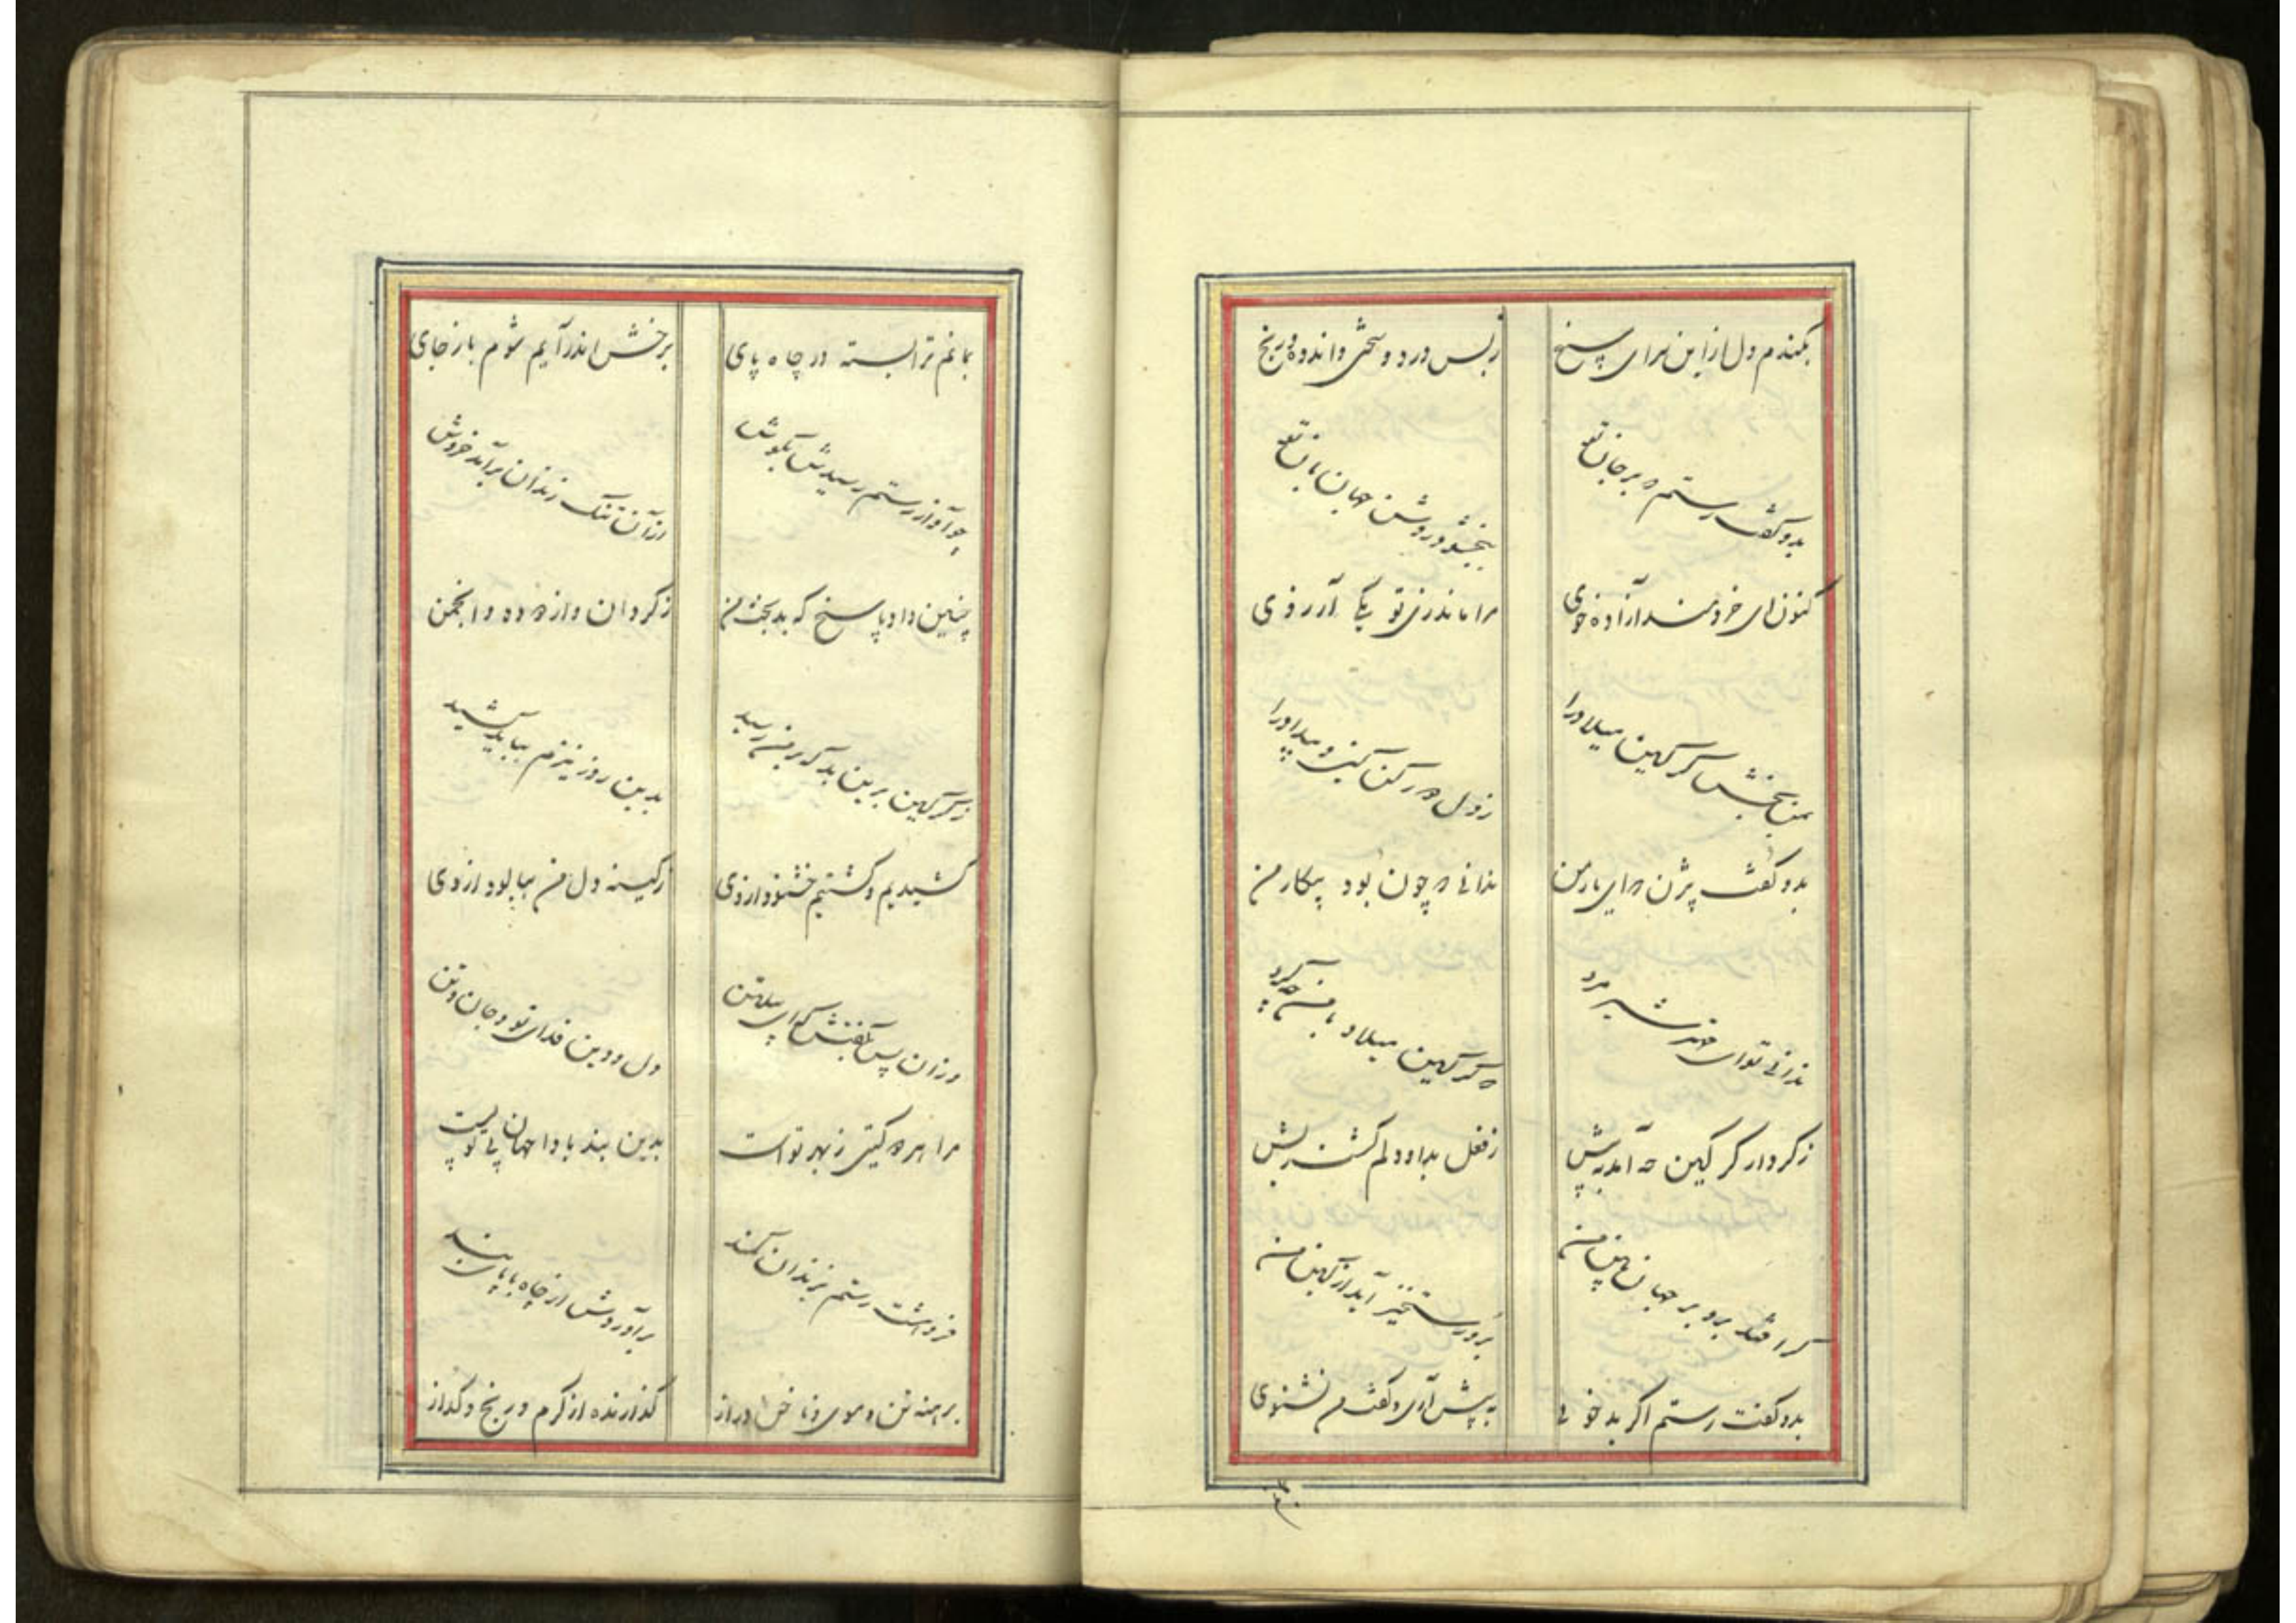 بکندم دل از این سرای سپنج
ز بس درد و سختی و اندوه و رنج
بدو گفت رستم که بر جان تو
ببخشود روشن جهانبان تو
کنون ای خردمند آزاده خوی
مرا ماند زی تو یکی آرزوی
بمن بخش گرگین میلاد را
ز دل دور کن کین و بیداد را
بدو گفت بیژن که ای یار من
ندانی که چون بود پیکار من
ندانی تو ای مهتر شیر مرد
که گرگین میلاد با من چه کرد
ز کردار گرگین چه آمد به پیش
ز فعل بد او دلم گشت ریش
گر افتد برو بر جهان بین من
برو رستخیز آید از کین من
بدو گفت رستم اگر بد خوئی
به پیش آری و گفت من نشنوی
بمانم
بمانم ترا بسته در چاه پای
برخش اندر آیم شوم باز جای
چو آواز رستم رسیدش بگوش
از آن تنگ زندان برآمد خروش
چنین داد پاسخ که بد بخت من
ز گردان و از دوده و انجمن
ز گرگین برین بد که بر من رسید
بدین روز نیزم بباید کشید
کشیدیم و گشتیم خشنود از وی
ز کینه دل من بیالود از وی
وزان پس بگفتش که ای پیلتن
دل و دین فدای تو و جان و تن
مرا بهره گیتی ز بهر تو است
بدین بند بادا جهان بی تو پست
فروهشت رستم بزندان کمند
برآوردش از چاه با پای بند
برهنه تن و موی و ناخن دراز
گدازنده از گرم و رنج و گداز